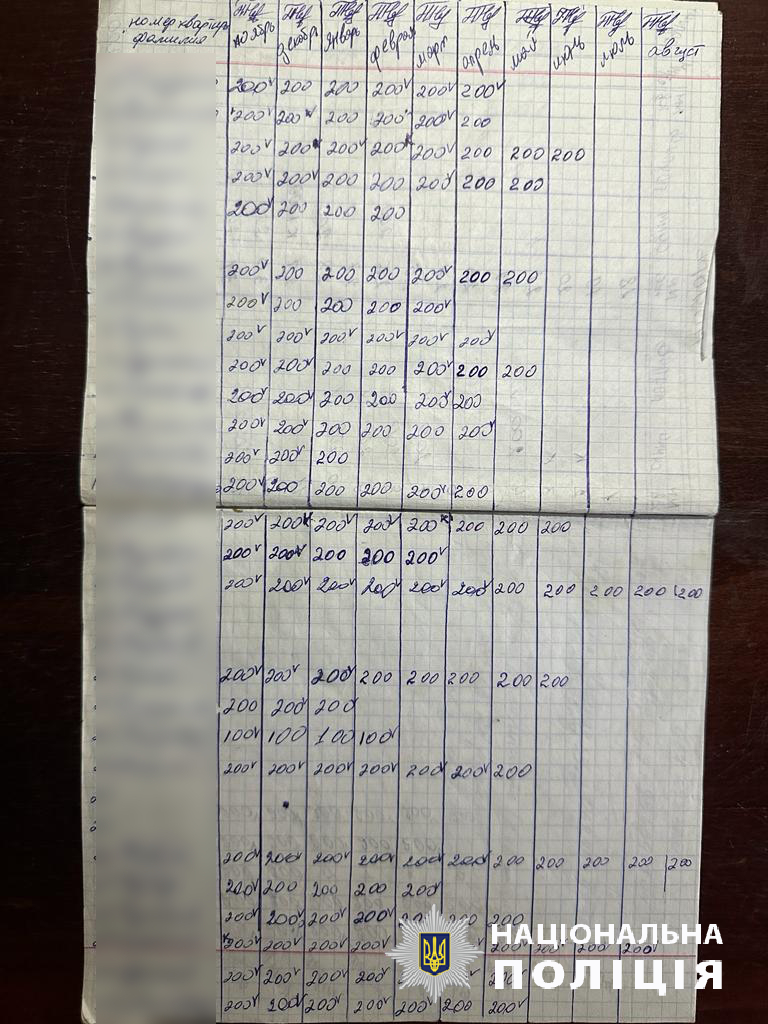 номер квартиры
фамилия
ноябрь декабрь январь феврал март апрель май июнь июль август
200√ 200 200 200√ 200√ 200√
200√ 200√ 200 200 200√ 200
200√ 200 200√ 200 200√ 200 200 200
200√ 200√ 200 200 200√ 200 200
200√ 200 200 200
200√ 200 200 200 200√ 200 200
200√ 200 200 200 200√
200√ 200√ 200√ 200√ 200√ 200√
200√ 200√ 200 200 200√ 200 200
200√ 200√ 200 200 200√ 200
200√ 200√ 200 200 200 200√
200√ 200√ 200
200√ 200 200 200 200√ 200
200√ 200 200√ 200√ 200 200 200 200
200√ 200√ 200 200 200√
200√ 200√ 200√ 200√ 200√ 200√ 200 200 200 200 200
200√ 200√ 200√ 200 200 200 200 200
200 200√ 200√
100√ 100 100 100√
200√ 200√ 200√ 200√ 200√ 200√ 200
200√ 200√ 200√ 200√ 200√ 200√ 200 200 200 200 200
200√ 200 200 200 200√
200√ 200√ 200√ 200√ 200
200√ 200√ 200√ 200√ 200√ 200 200√ 200√
200√ 200√ 200√ 200
200√ 200√ 200√ 200√ 200√ 200 200√
НАЦІОНАЛЬНА
ПОЛІЦІЯ